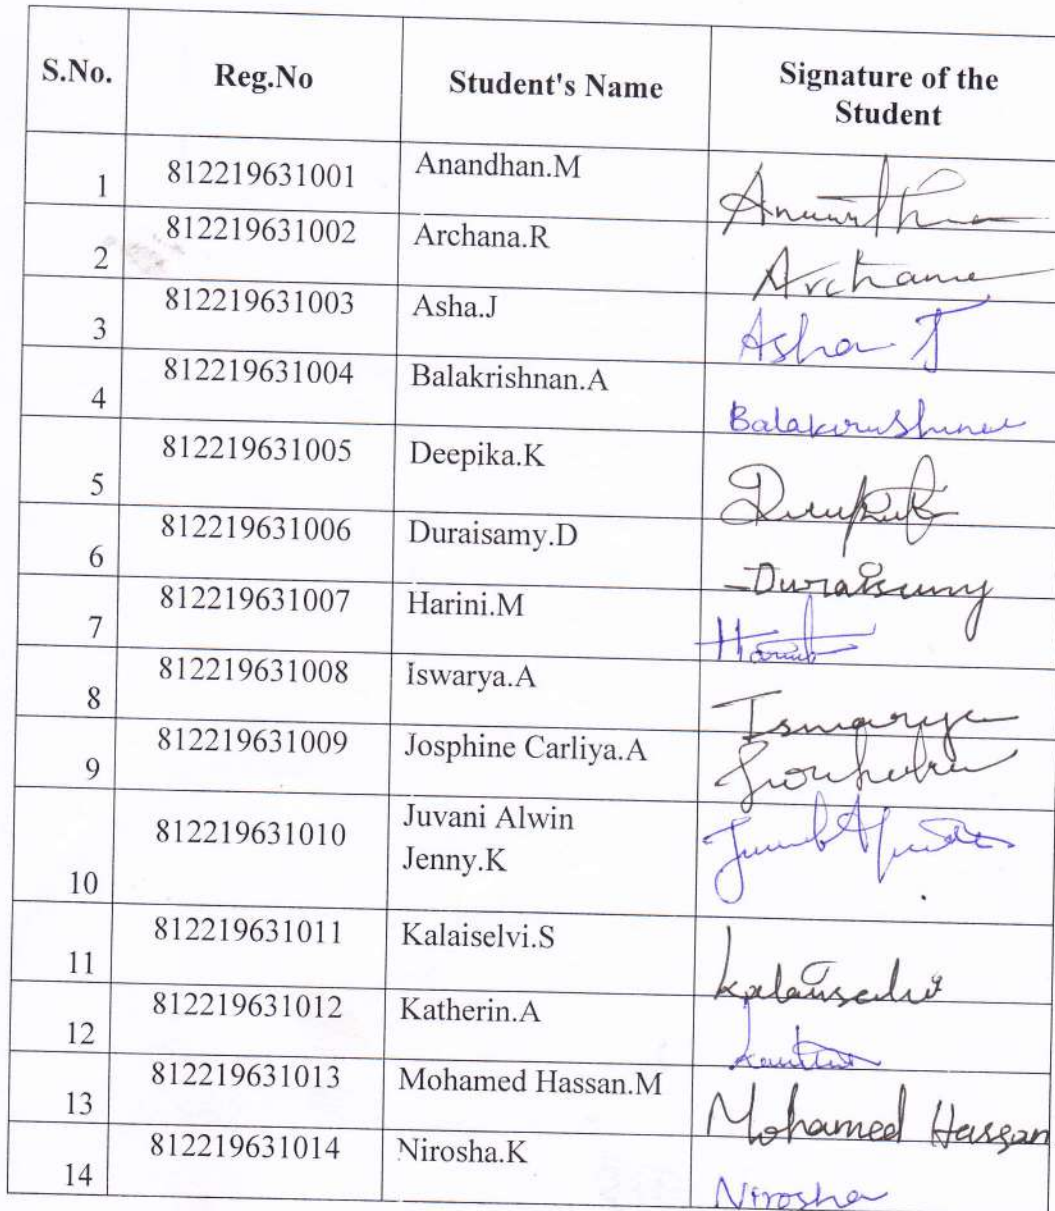 S.No. Reg.No Student's Name Signature of the
Student
1 812219631001 Anandhan.M
2 812219631002 Archana.R Archana
3 812219631003 Asha.J Asha J
4 812219631004 Balakrishnan.A
5 812219631005 Deepika.K
6 812219631006 Duraisamy.D
7 812219631007 Harini.M
8 812219631008 Iswarya.A
9 812219631009 Josphine Carliya.A
10 812219631010 Juvani Alwin
Jenny.K
11 812219631011 Kalaiselvi.S
12 812219631012 Katherin.A
13 812219631013 Mohamed Hassan.M Mohamed Hassan
14 812219631014 Nirosha.K Nirosha